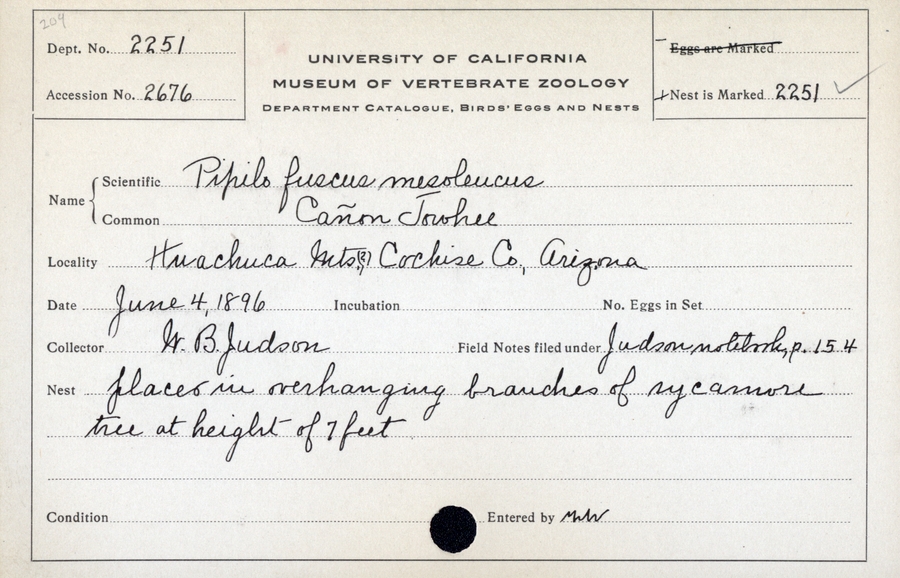 204
Dept. No. 2251
Accession No. 2676
UNIVERSITY OF CALIFORNIA
MUSEUM OF VERTEBRATE ZOOLOGY
DEPARTMENT CATALOGUE, BIRDS' EGGS AND NESTS
Eggs are Marked
Nest is Marked 2251
Name
Scientific Pipilo fuscus mesoleucus
Common Cañon Towhee
Locality Huachuca Mts(?), Cochise Co., Arizona
Date June 4, 1896 Incubation No. Eggs in Set
Collector W. B. Judson Field Notes filed under Judson notebook, p. 154
Nest placed in overhanging branches of sycamore
tree at height of 7 feet
Condition Entered by